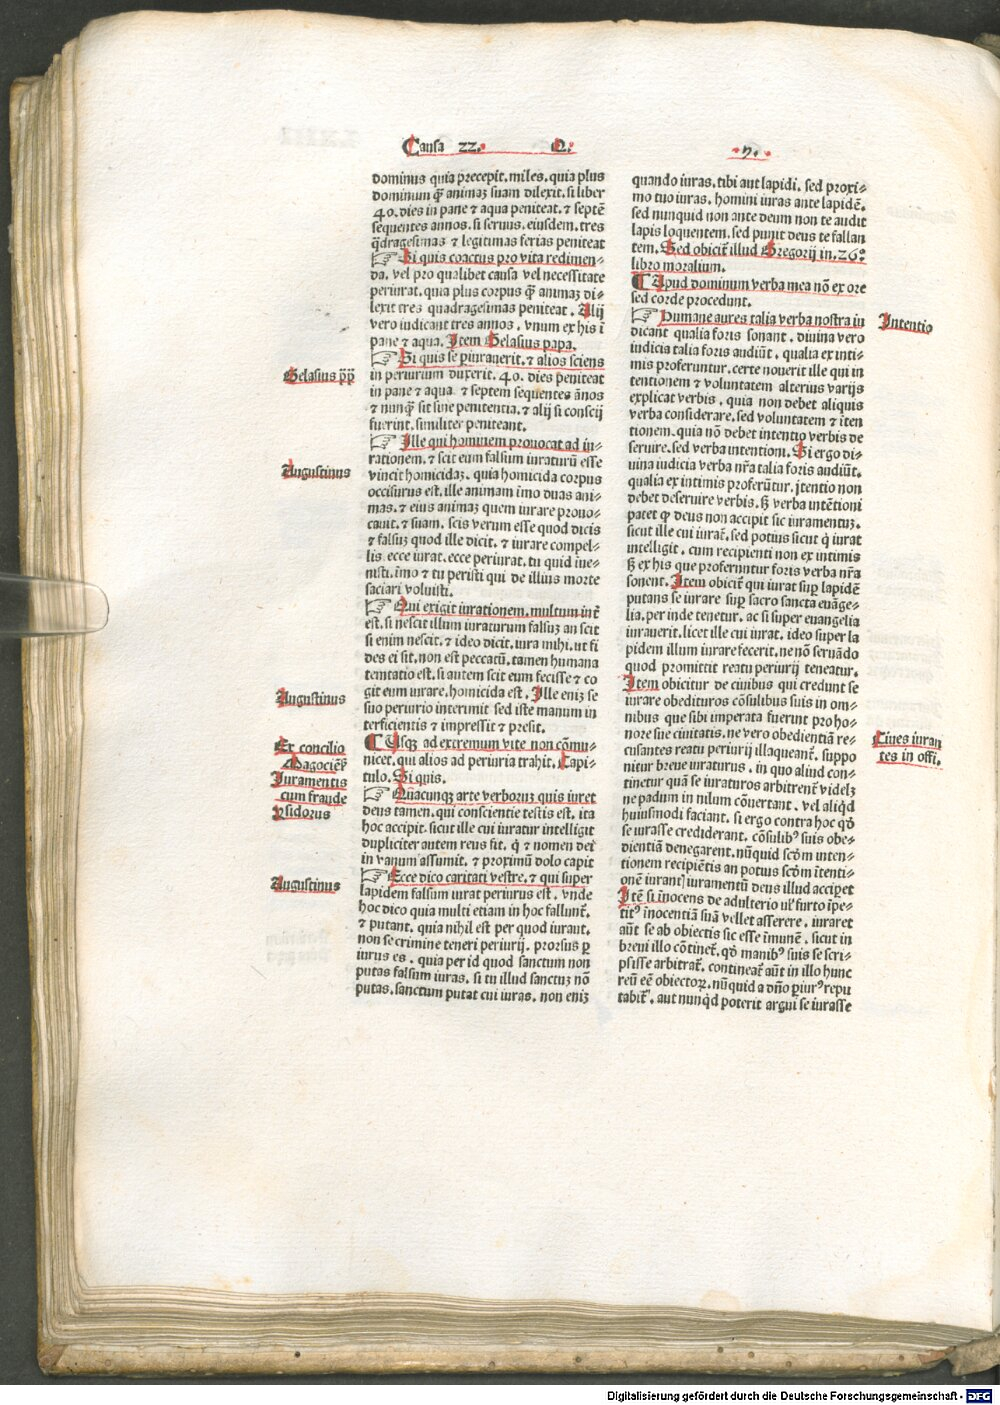 Causa 22. Q. 7.
dominus quia precepit. miles. quia plus
dominum ꝙ̄ animaʒ suam dilexit. si liber
40. dies in pane ⁊ aqua peniteat. ⁊ septē
sequentes annos. si seruus. eiusdem. tres
q̄dragesimas ⁊ legitimas ferias peniteat
☞ Si quis coactus pro vita redimen⸗
da. vel pro qualibet causa vel necessitate
periurat. quia plus corpus ꝙ̄ animaʒ di⸗
lexit tres quadragesimas peniteat. Alij
vero iudicant tres annos. vnum ex his ī
pane ⁊ aqua. Item Gelasius papa.
☞ Si quis se piurauerit. ⁊ alios sciens
in periurium duxerit. 40. dies peniteat
in pane ⁊ aqua ⁊ septem sequentes ānos
⁊ nunꝙ̄ sit sine penitentia. ⁊ alij si conscij
fuerint. similiter peniteant.
☞ Ille qui hominem prouocat ad iu⸗
rationem. ⁊ scit eum falsum iuraturū esse
vincit homicidaʒ. quia homicida corpus
occisurus est. ille animam imo duas ani⸗
mas. ⁊ eius animaʒ quem iurare prouo⸗
cauit. ⁊ suam. scis verum esse quod dicis
⁊ falsuʒ quod ille dicit. ⁊ iurare compel⸗
lis. ecce iurat. ecce periurat. tu quid iue⸗
nisti. imo ⁊ tu peristi qui de illius morte
saciari voluisti.
☞ Qui exigit iurationem. multum int̄
est. si nescit illum iuraturum falsuʒ an scit
si enim nescit. ⁊ ideo dicit. iura mihi. ut fi
des ei sit. non est peccatū. tamen humana
temtatio est. si autem scit eum fecisse ⁊ co
git eum iurare. homicida est. Ille eniʒ se
suo periurio interimit sed iste manum in
terficientis ⁊ impressit ⁊ presit.
¶ Usqʒ ad extremum vite non cōmu⸗
nicet. qui alios ad periuria trahit. Capi⸗
tulo. Si quis.
☞ Quacunqʒ arte verboruʒ quis iuret
deus tamen. qui conscientie testis est. ita
hoc accipit. sicut ille cui iuratur intelligit
dupliciter autem reus fit. q̇ ⁊ nomen dei
in vanum assumit. ⁊ proximū dolo capit
☞ Ecce dico caritati vestre. ⁊ qui super
lapidem falsum iurat periurus est. vnde
hoc dico quia multi etiam in hoc fallunt̄.
⁊ putant. quia nihil est per quod iurant.
non se crimine teneri periurij. prorsus ꝑ
iurus es. quia per id quod sanctum non
putas falsum iuras. si tu illud sanctuʒ nō
putas. sanctum putat cui iuras. non eniʒ
Gelasius p̄p̄
Augustinus
Augustinus
Ex concilio
Magociēs̄
Iuramentis
cum fraude
ysidorus
Augustinus
quando iuras. tibi aut lapidi. sed proxi⸗
mo tuo iuras. homini iuras ante lapidē.
sed nunquid non ante deum non te audit
lapis loquentem. sed punit deus te fallan
tem. Sed obicit̄ illud Gregorij in. 26°
libro moralium.
¶ Apud dominum verba mea nō ex ore
sed corde procedunt.
☞ Humane aures talia verba nostra iu
dicant qualia foris sonant. diuina vero
iudicia talia foris audiūt. qualia ex inti⸗
mis proferuntur. certe nouerit ille qui in
tentionem ⁊ voluntatem alterius varijs
explicat verbis. quia non debet aliquis
verba considerare. sed voluntatem ⁊ iten
tionem. quia nō debet intentio verbis de
seruire. sed verba intentioni. Si ergo di⸗
uina iudicia verba nr̄a talia foris audiūt.
qualia ex intimis proferūtur. jtentio non
debet deseruire verbis. sꝫ verba intētioni
patet ꝙ deus non accipit sic iuramentuʒ.
sicut ille cui iurat̄. sed potius sicut q̇ iurat
intelligit. cum recipienti non ex intimis
sꝫ ex his que proferuntur foris verba nr̄a
sonent. Item obicit̄ qui iurat sup̱ lapidē
putans se iurare sup̱ sacro sancta euāge⸗
lia. per inde tenetur. ac si super euangelia
iurauerit. licet ille cui iurat. ideo super la
pidem illum iurare fecerit. ne nō seruādo
quod promittit reatu periurij teneatur.
Item obicitur de ciuibus qui credunt se
iurare obedituros cōsulibus suis in om⸗
nibus que sibi imperata fuerint pro ho⸗
nore sue ciuitatis. ne vero obedientiā re⸗
cusantes reatu periurij illaqueant̄. suppo
nitur breue iuraturus. in quo aliud con⸗
tinetur quā se iuraturos arbitrent̄ videlʒ
ne padum in nilum cōuertant. vel aliq̇d
huiusmodi faciant. si ergo contra hoc qd̄
se iurasse crediderant. cōsulibꝰ suis obe⸗
dientiā denegarent. nūquid scd̄m inten⸗
tionem recipiētis an potius scd̄m itenti⸗
onē iurant] iuramentū deus illud accipet
Itē si inocens de adulterio ul̓ furto īpe⸗
titꝰ inocentiā suā vellet asserere. iuraret
aūt se ab obiectis sic esse īmunē. sicut in
breui illo cōtinet̄. qd̄ manibꝰ suis se scri⸗
psisse arbitrat̄. contineat̄ aūt in illo hunc
reū eē obiectoꝝ. nūquid a dn̄o ꝑiurꝰ repu
tabit̄. aut nunq̇d poterit argui se iurasse
Intentio
Ciues iuran
tes in offi.
Digitalisierung gefördert durch die Deutsche Forschungsgemeinschaft - DFG